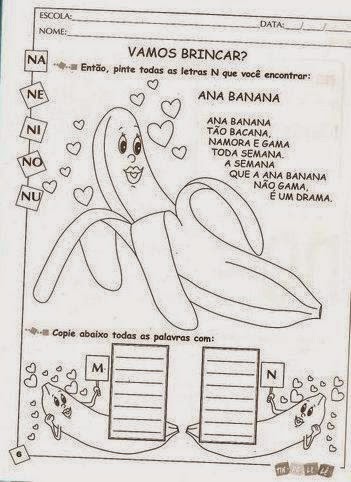 ESCOLA:
DATA: / /
NOME:
VAMOS BRINCAR?
Então, pinte todas as letras N que você encontrar:
NA
NE
NI
NO
NU
ANA BANANA
ANA BANANA
TÃO BACANA,
NAMORA E GAMA
TODA SEMANA.
A SEMANA
QUE A ANA BANANA
NÃO GAMA,
É UM DRAMA.
Copie abaixo todas as palavras com:
M
N
6